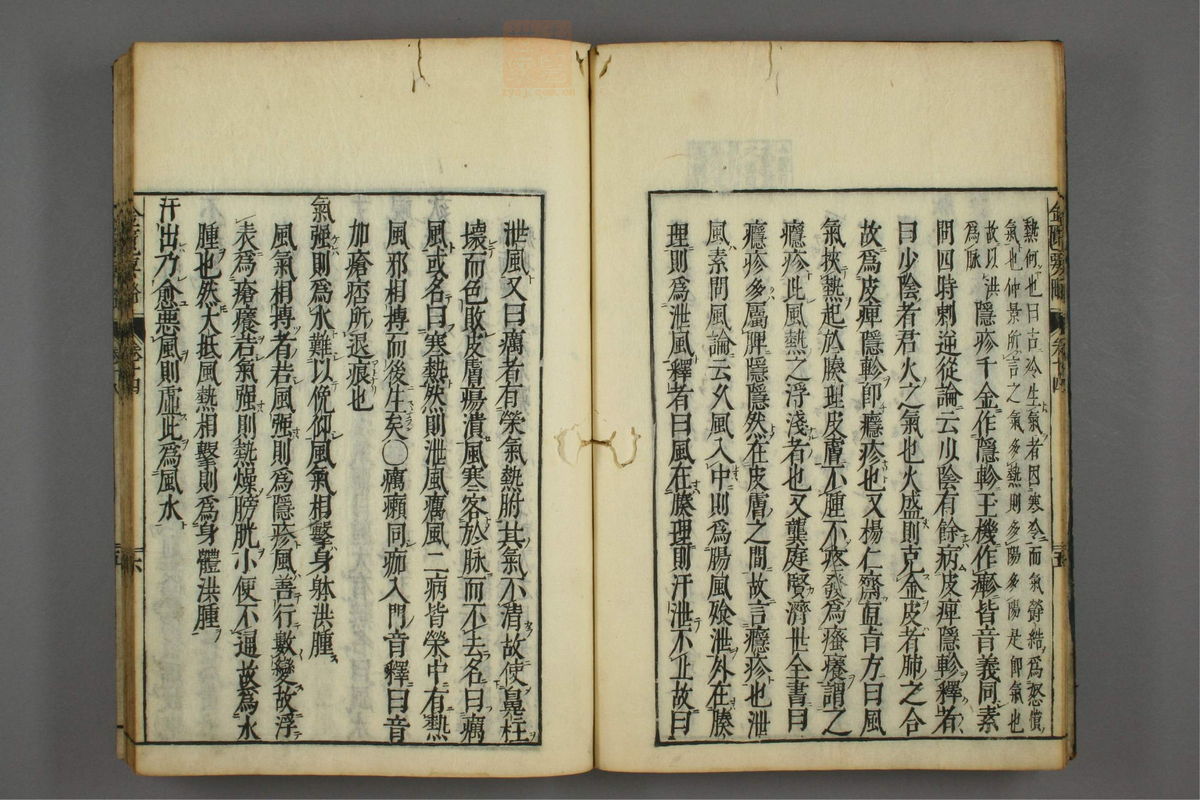 熱何也曰古冷生氣者因寒冷而氣欝結爲怒憤
氣也仲景所言之氣多熱則多陽多陽是卽氣也
故以洪
爲脉
隱疹千金作隱軫王機作瘮皆音義同素
問四時刺逆從論云少陰有餘病皮痺隱軫釋者
曰少陰者君火之氣也火盛則克金皮者肺之合
故爲皮痺隱軫卽癮疹也又楊仁齋直㫖方曰風
氣挾熱起於腠理皮膚不腫不疼發爲瘙癢謂之
癮疹此風熱之浮淺者也又龔庭賢濟世全書曰
癮疹多屬脾隱隱然在皮膚之間故言癮疹也泄
風素問風論云久風入中則爲腸風飱泄外在腠
理則爲泄風釋者曰風在腠理則汗泄不止故曰
泄風又曰癘者有榮氣熱胕其氣不清故使鼻柱
壞而色敗皮膚瘍潰風寒客於脉而不去名曰癘
風或名曰寒熱然則泄風癘風二病皆榮中有熱
風邪相搏而後生矣○癘癩同痂入門音釋曰音
加瘡痞所退痕也
氣强則爲水難以俛仰風氣相擊身躰洪腫
風氣相搏者若風强則爲隱疹風善行數變故浮
表爲瘡癢若氣强則熱燥膀胱小便不通故爲水
腫也然大抵風熱相擊則爲身體洪腫
汗出乃愈惡風則虛此爲風水